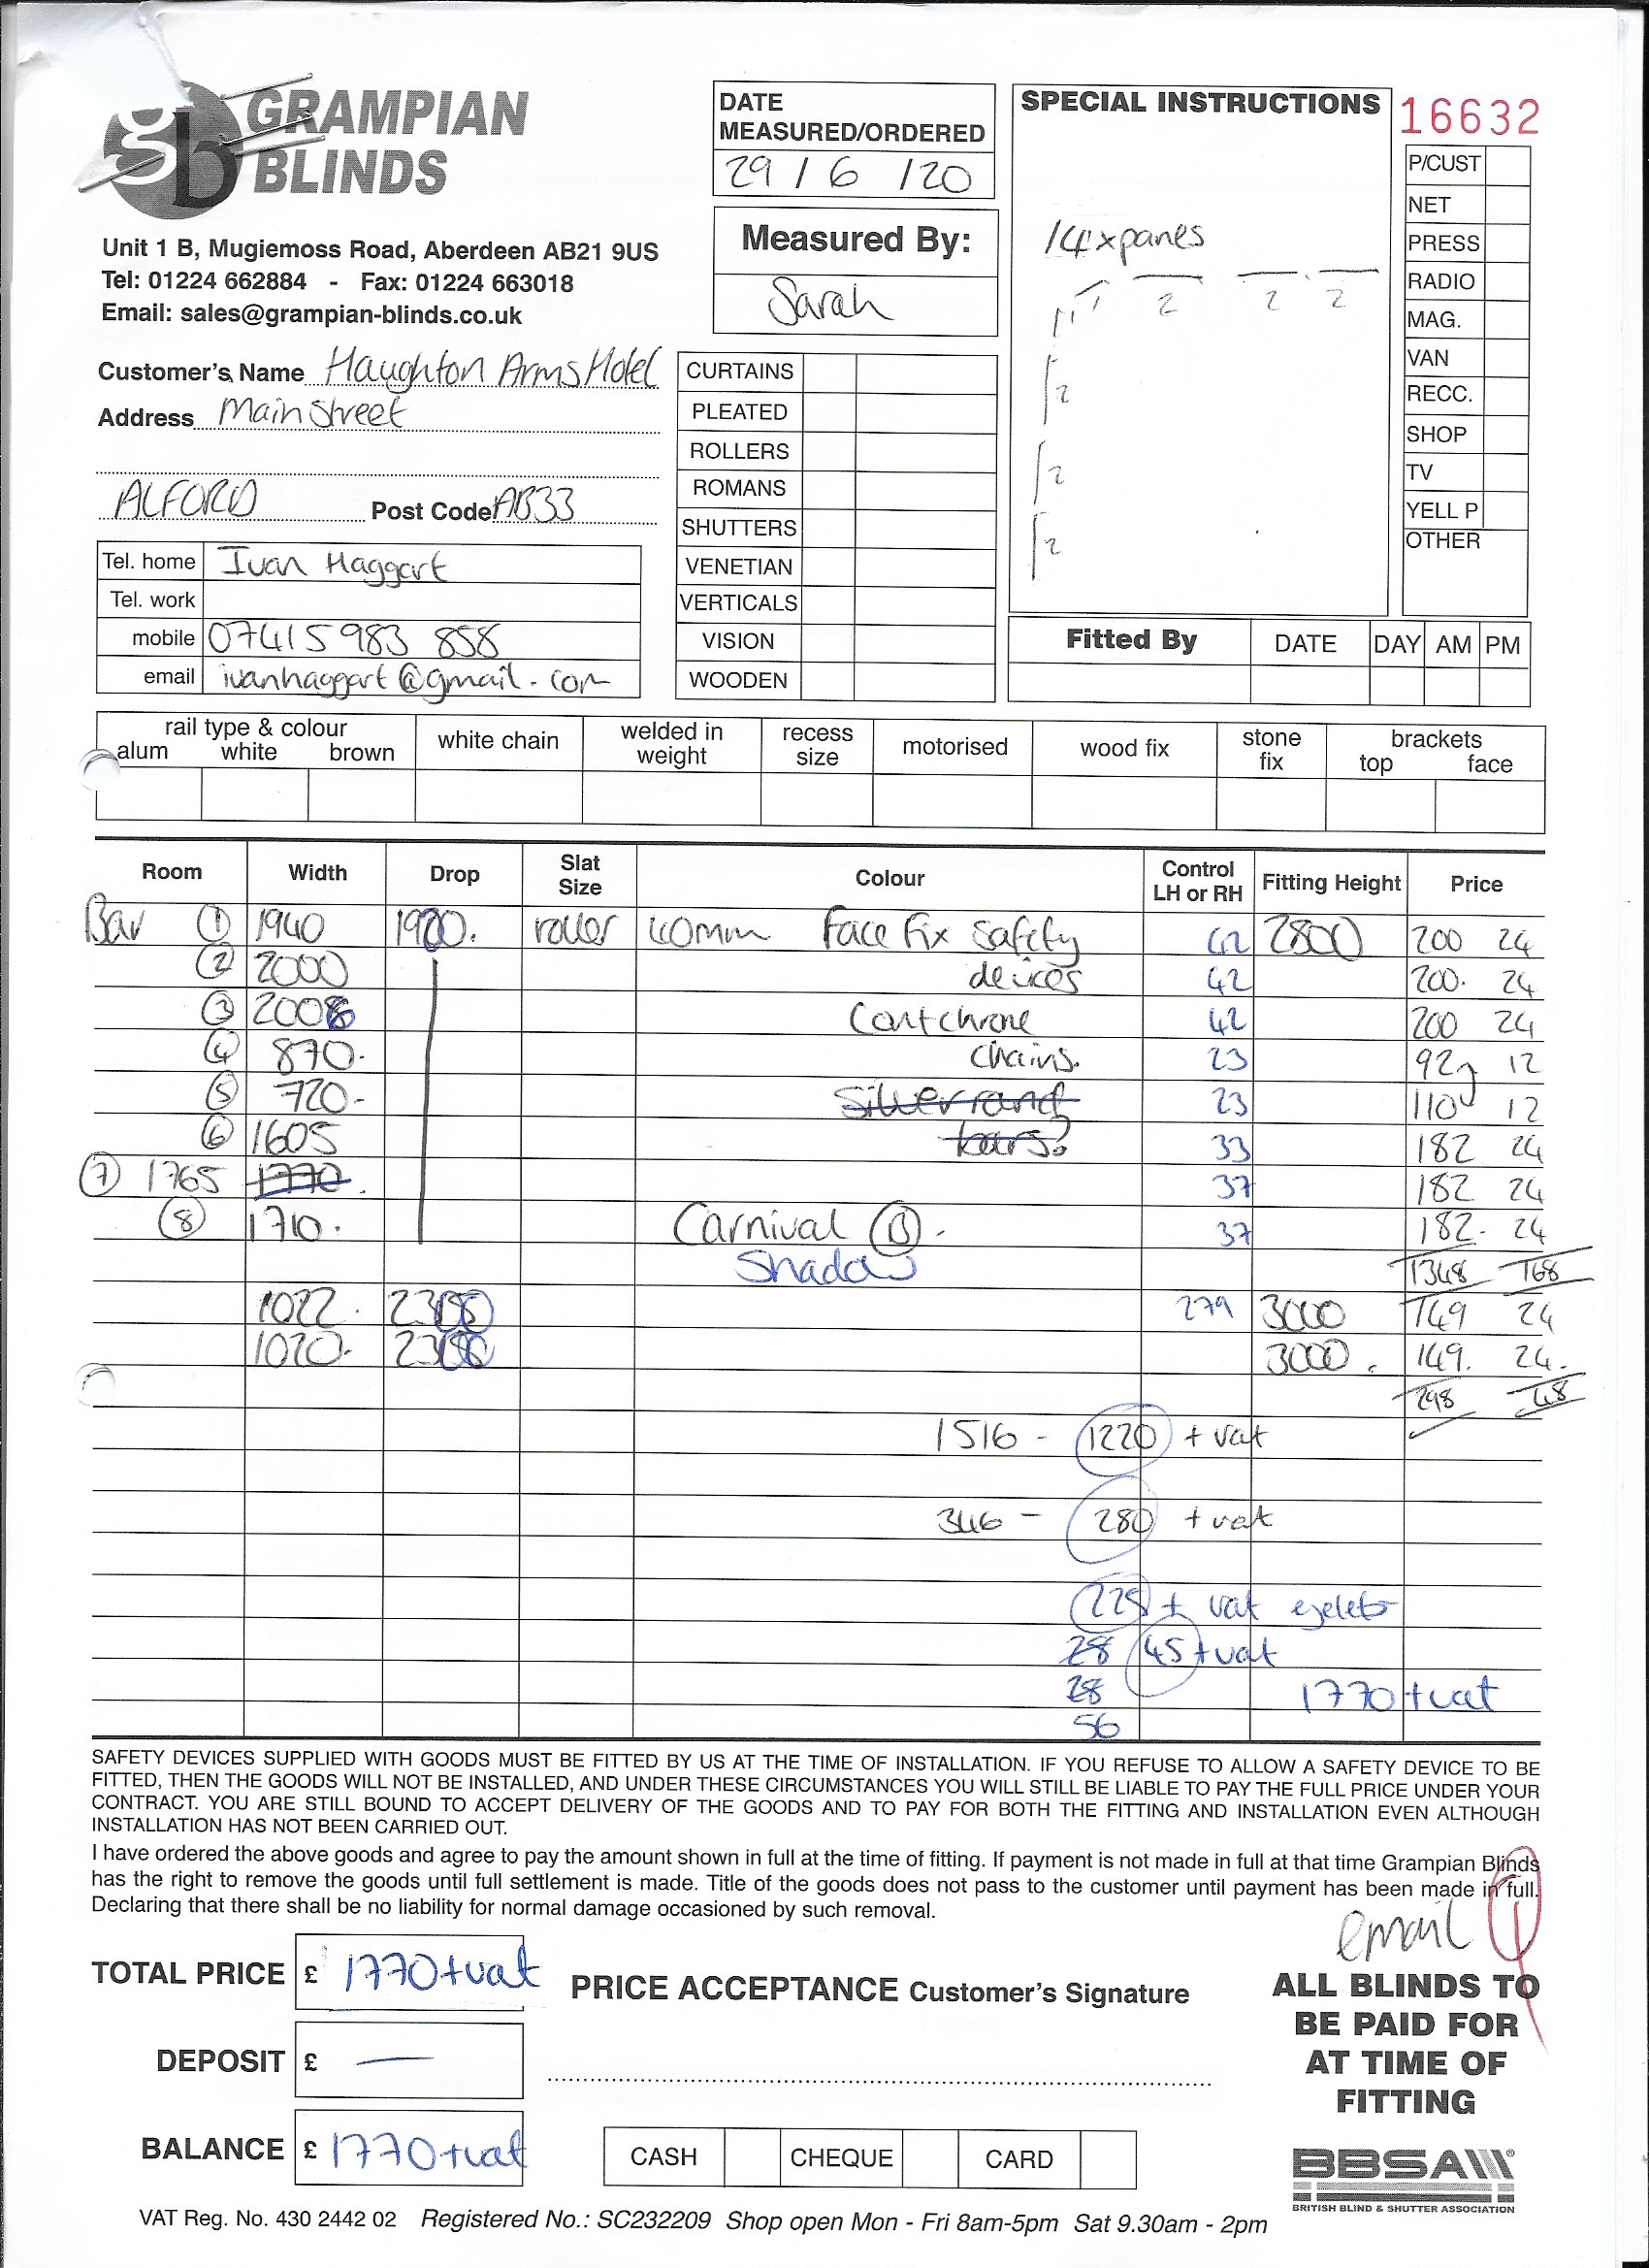 GRAMPIAN
BLINDS
gb
Unit 1 B, Mugiemoss Road, Aberdeen AB21 9US
Tel: 01224 662884 - Fax: 01224 663018
Email: sales@grampian-blinds.co.uk
DATE
MEASURED/ORDERED
29 / 6 / 20
Measured By:
Sarah
SPECIAL INSTRUCTIONS
14 x panes
2 2 2
2
2
2
16632
P/CUST
NET
PRESS
RADIO
MAG.
VAN
RECC.
SHOP
TV
YELL P
OTHER
Customer's Name Haughton Arms Hotel
Address Main Street
ALFORD Post Code AB33
Tel. home Ivan Haggart
Tel. work
mobile 07415 983 858
email ivanhaggart@gmail.com
CURTAINS
PLEATED
ROLLERS
ROMANS
SHUTTERS
VENETIAN
VERTICALS
VISION
WOODEN
Fitted By DATE DAY AM PM
rail type & colour
alum white brown
white chain
welded in weight
recess size
motorised
wood fix
stone fix
brackets
top face
Room Width Drop Slat Size Colour Control LH or RH Fitting Height Price
Bar 1 1940 1900. roller 40mm Face Fix safety 42 2800 200 24
2 2000 devices 42 200. 24
3 2006 Cont chrome 42 200 24
4 870. chains. 23 92 12
5 720- Silver round 23 110 12
6 1605 bars? 33 182 24
7 1765 1770. 37 182 24
8 1710. Carnival B - 37 182. 24
Shadow 1348 168
1022. 279 3000 149 24
1020. 3000. 149. 24.
298 48
1516 - 1220 + vat
346 - 280 + vat
225 + vat eyelets
28 45 + vat
28 1770 + vat
56
SAFETY DEVICES SUPPLIED WITH GOODS MUST BE FITTED BY US AT THE TIME OF INSTALLATION. IF YOU REFUSE TO ALLOW A SAFETY DEVICE TO BE
FITTED, THEN THE GOODS WILL NOT BE INSTALLED, AND UNDER THESE CIRCUMSTANCES YOU WILL STILL BE LIABLE TO PAY THE FULL PRICE UNDER YOUR
CONTRACT. YOU ARE STILL BOUND TO ACCEPT DELIVERY OF THE GOODS AND TO PAY FOR BOTH THE FITTING AND INSTALLATION EVEN ALTHOUGH
INSTALLATION HAS NOT BEEN CARRIED OUT.
I have ordered the above goods and agree to pay the amount shown in full at the time of fitting. If payment is not made in full at that time Grampian Blinds
has the right to remove the goods until full settlement is made. Title of the goods does not pass to the customer until payment has been made in full.
Declaring that there shall be no liability for normal damage occasioned by such removal.
email
TOTAL PRICE £ 1770+vat
PRICE ACCEPTANCE Customer's Signature
DEPOSIT £ —
BALANCE £ 1770+vat
CASH CHEQUE CARD
ALL BLINDS TO
BE PAID FOR
AT TIME OF
FITTING
BBSA
BRITISH BLIND & SHUTTER ASSOCIATION
VAT Reg. No. 430 2442 02 Registered No.: SC232209 Shop open Mon - Fri 8am-5pm Sat 9.30am - 2pm